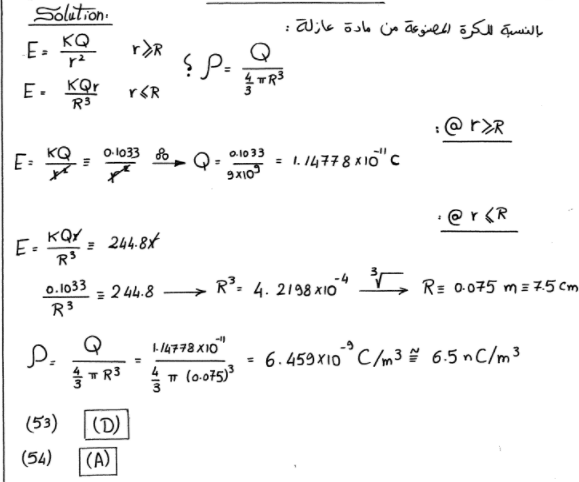 Solution:
بالنسبة للكرة المصنوعة من مادة عازلة :
E = KQ/r² r ≥ R ؟ ρ = Q/(4/3 π R³)
E = KQr/R³ r ≤ R
: @ r ≥ R
E = KQ/r² ≡ 0.1033/r² ∴ → Q = 0.1033/9×10⁹ = 1.14778×10⁻¹¹ C
: @ r ≤ R
E = KQr/R³ ≡ 244.8r
0.1033/R³ ≡ 244.8 → R³ = 4.2198×10⁻⁴ ∛ → R ≡ 0.075 m ≡ 7.5 cm
ρ = Q/(4/3 π R³) = 1.14778×10⁻¹¹/(4/3 π (0.075)³) = 6.459×10⁻⁹ C/m³ ≅ 6.5 nC/m³
(53) (D)
(54) (A)